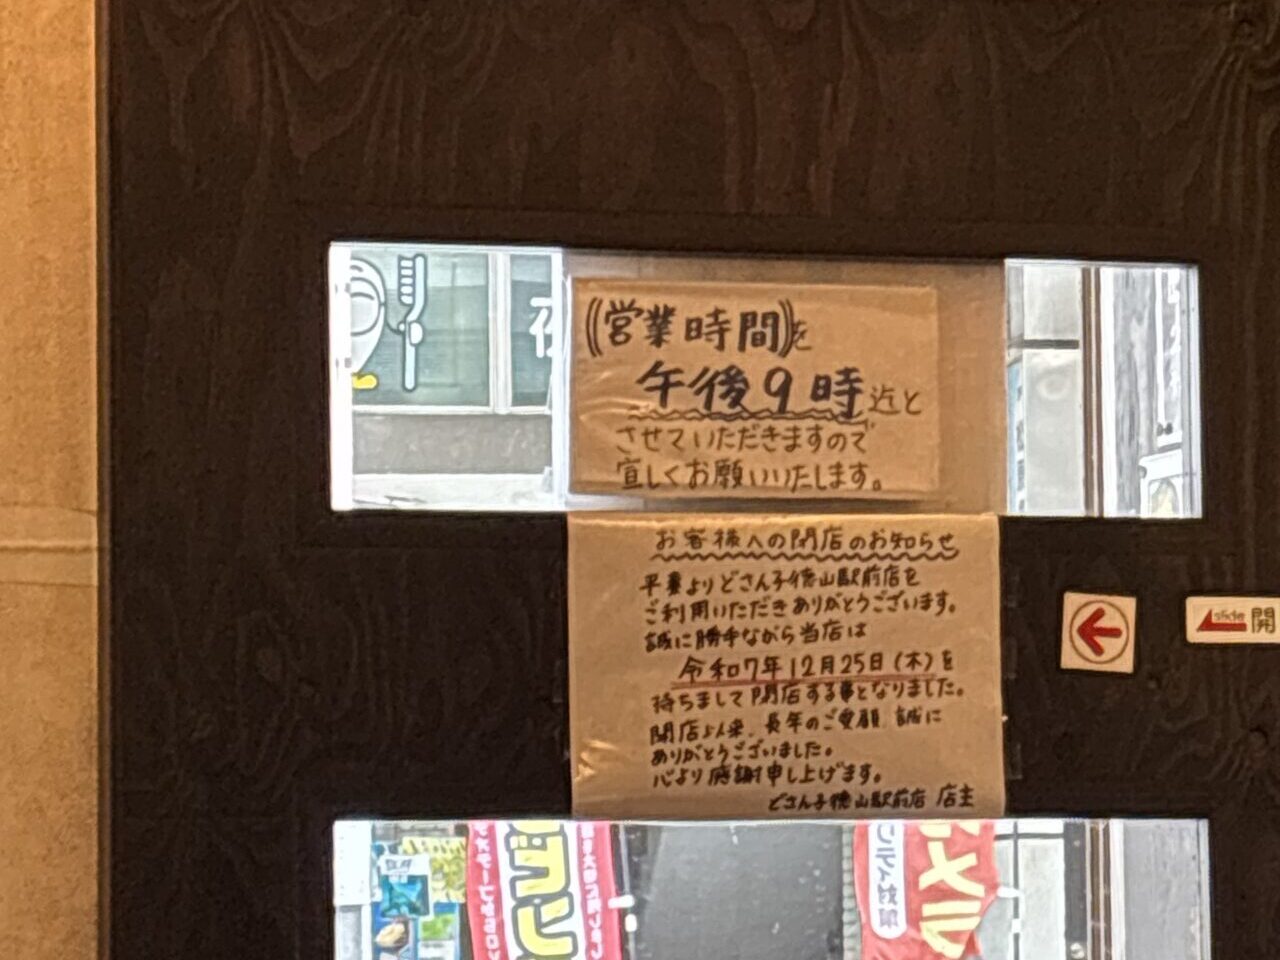 営業時間を
午後9時迄と
させていただきますので
宜しくお願いいたします。
お客様への閉店のお知らせ
平素よりどさん子徳山駅前店を
ご利用いただきありがとうございます。
誠に勝手ながら当店は
令和7年12月25日(木)を
持ちまして閉店する事となりました。
開店以来、長年のご愛顧、誠に
ありがとうございました。
心より感謝申し上げます。
どさん子徳山駅前店 店主
slide 開